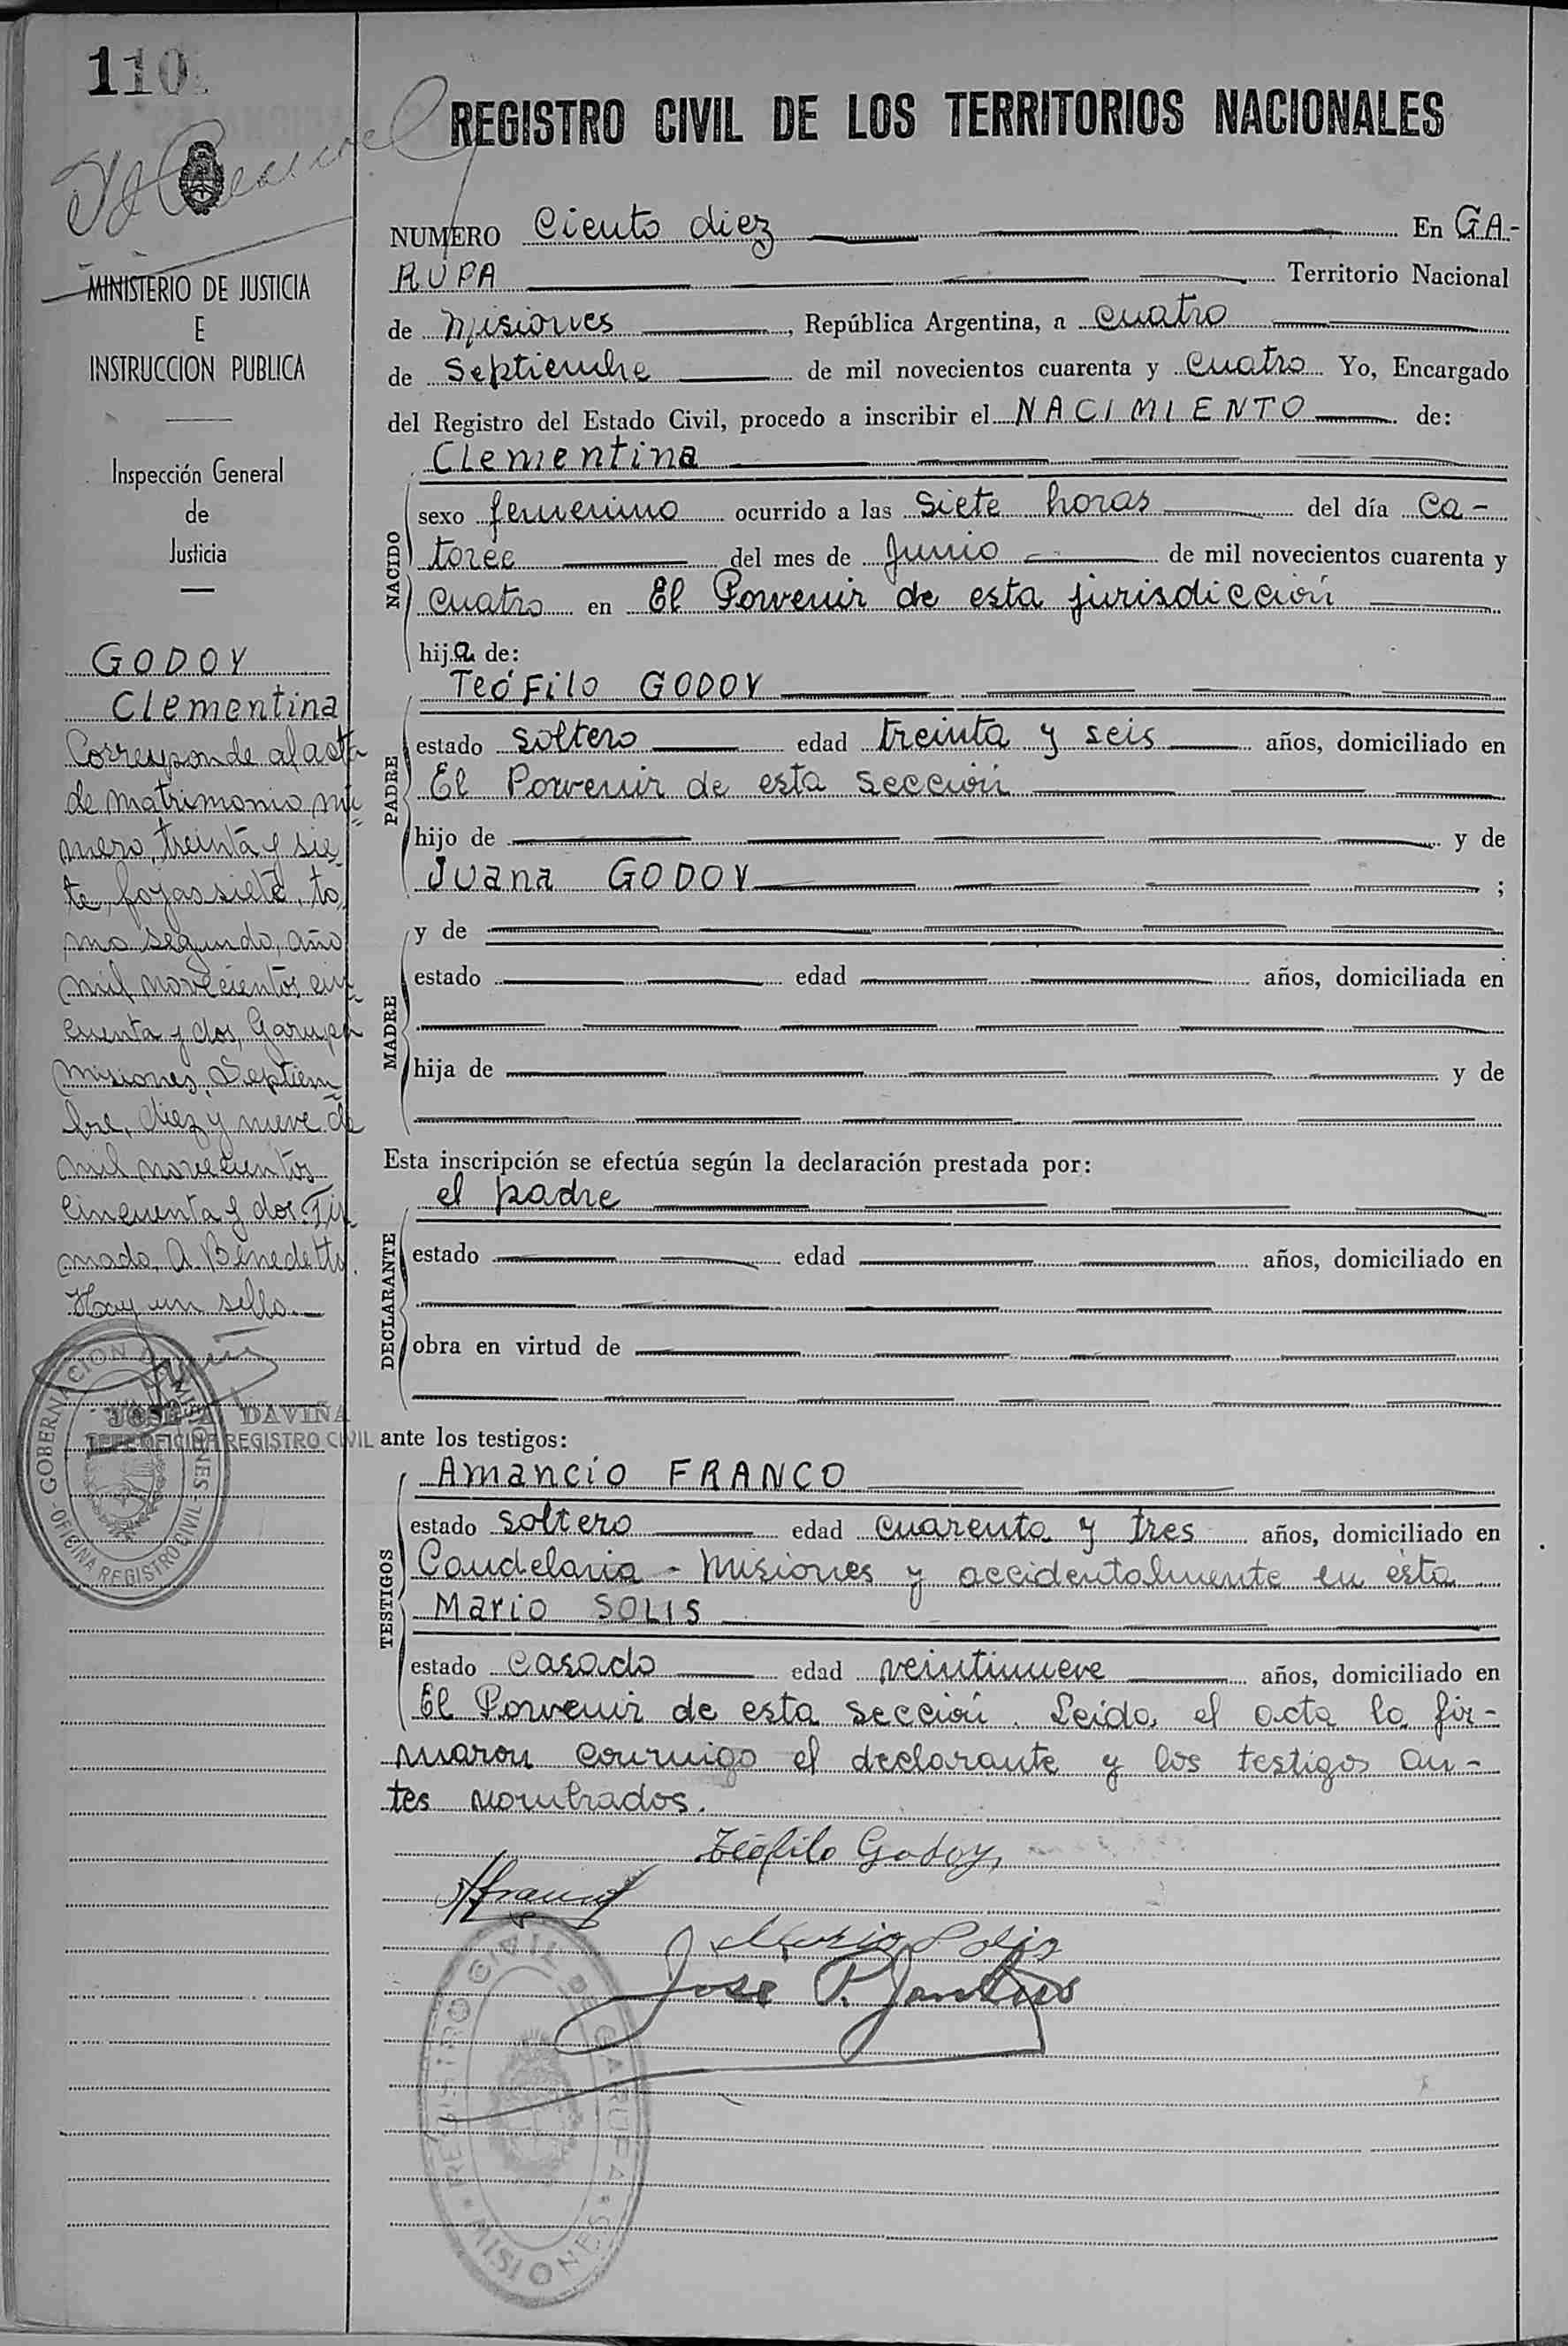 110
REGISTRO CIVIL DE LOS TERRITORIOS NACIONALES
MINISTERIO DE JUSTICIA
E
INSTRUCCION PUBLICA
Inspección General
de
Justicia
GODOY
Clementina
Corresponde al acta
de matrimonio nú-
mero, treinta y sie-
te, fojas siete, to-
mo segundo, año
mil novecientos cin-
cuenta y dos, Garupá
Misiones, Septiem-
bre, diez y nueve de
mil novecientos
cincuenta y dos. Fir-
mado, A. Benedetti.
Hay un sello.
GOBERNACION DE MISIONES
OFICINA REGISTRO CIVIL
JOSE A. DAVIÑA
JEFE OFICINA REGISTRO CIVIL
NUMERO Ciento diez En GA-
RUPA Territorio Nacional
de Misiones, República Argentina, a cuatro
de Septiembre de mil novecientos cuarenta y cuatro Yo, Encargado
del Registro del Estado Civil, procedo a inscribir el NACIMIENTO de:
Clementina
NACIDO
sexo femenino ocurrido a las siete horas del día ca-
torce del mes de Junio de mil novecientos cuarenta y
cuatro en El Porvenir de esta jurisdicción
hija de:
Teófilo GODOY
PADRE
estado soltero edad treinta y seis años, domiciliado en
El Porvenir de esta sección
hijo de y de
Juana GODOY ;
y de
MADRE
estado edad años, domiciliada en
hija de y de
Esta inscripción se efectúa según la declaración prestada por:
el padre
DECLARANTE
estado edad años, domiciliado en
obra en virtud de
ante los testigos:
Amancio FRANCO
TESTIGOS
estado soltero edad cuarenta y tres años, domiciliado en
Candelaria - Misiones y accidentalmente en ésta
Mario SOLIS
estado casado edad veintinueve años, domiciliado en
El Porvenir de esta sección. Leida el acta la fir-
maron conmigo el declarante y los testigos an-
tes nombrados.
Teófilo Godoy
AFranco
Mario Solis
Jose P.
REGISTRO CIVIL DE GARUPA
MISIONES